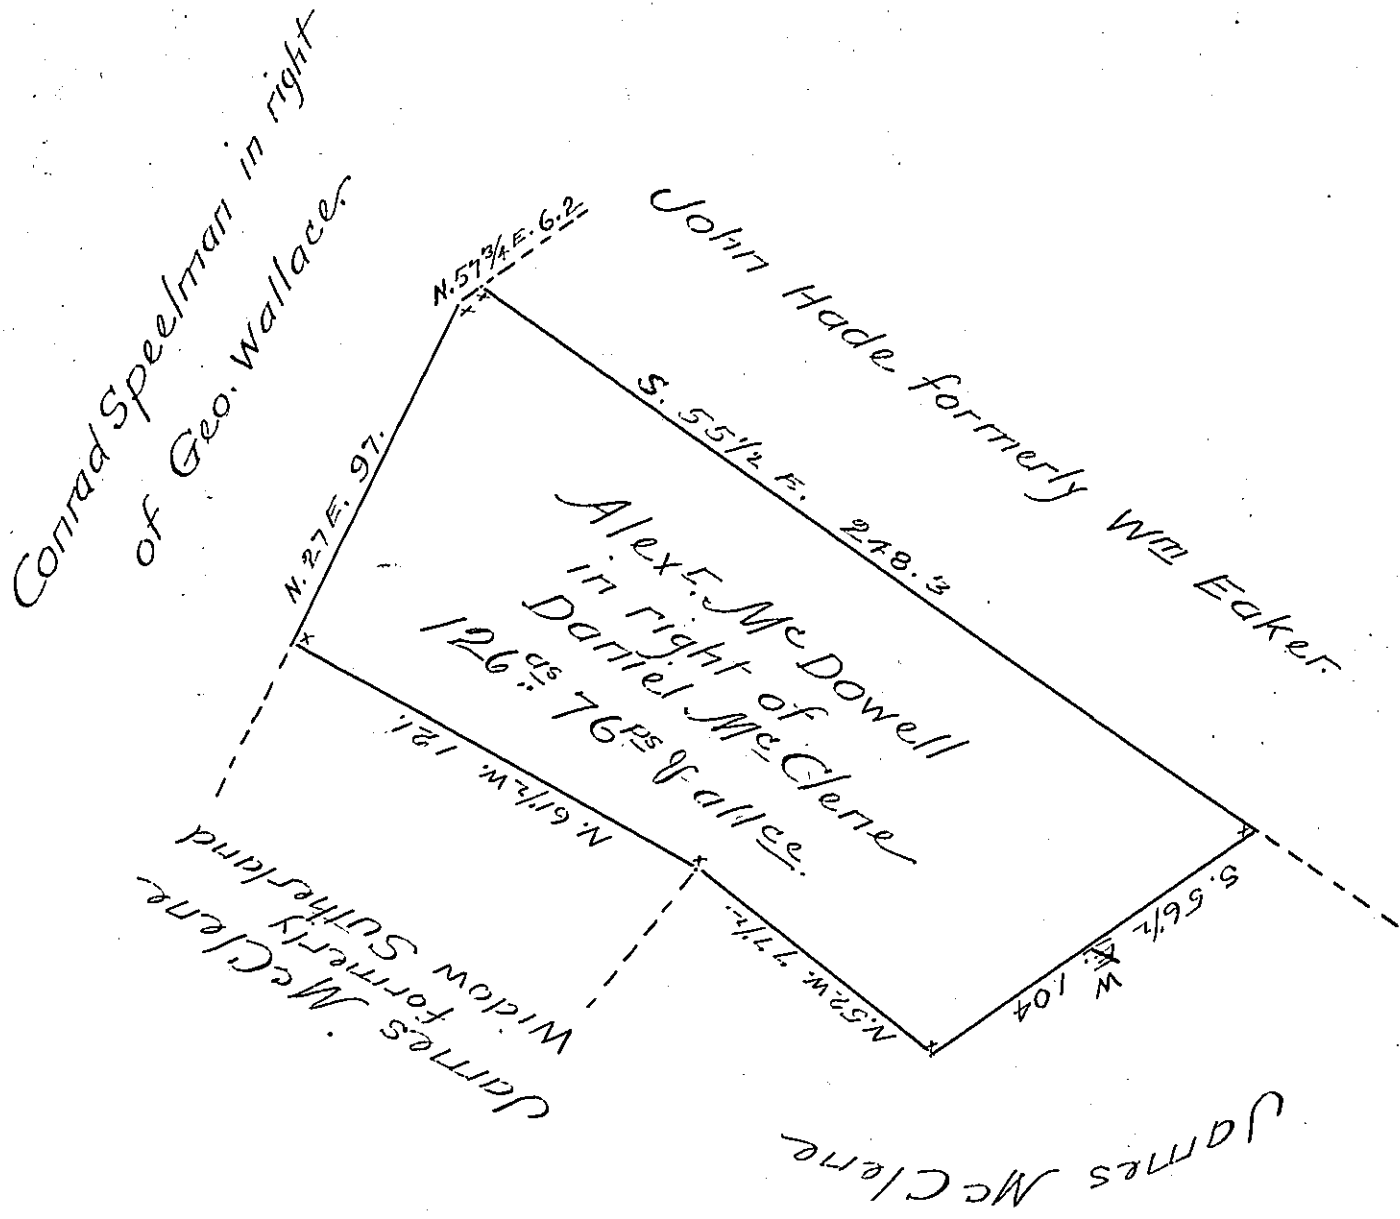 Conrad Speelman in right
of Geo. Wallace.
N. 57 3/4 E. 6.2
John Hade formerly Wm Eaker.
N. 27 E. 97.
S. 55 1/2 E. 248.3
Alexr. McDowell
in right of
Daniel McClene
126 as 76 ps & allce.
N. 61 1/2 W. 121.
N. 52 W. 77 1/2.
S. 56 1/2 E. W 104
James McClene
Formerly
Widow Sutherland
James McClene